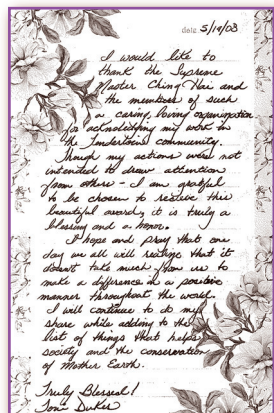 date 5/19/03
I would like to
thank the Supreme
Master Ching Hai and
the members of such
a caring, loving organization
for acknowledging my work in
the community.
Though my actions were not
intended to draw attention
from others - I am grateful
to be chosen to receive this
beautiful award, it is truly a
blessing and a honor.
I hope and pray that one
day we all will realize that it
doesn't take much from us to
make a difference in a positive
manner throughout the world.
I will continue to do my
share while adding to the
list of things that helps
society and the conservation
of Mother Earth.
Truly Blessed!